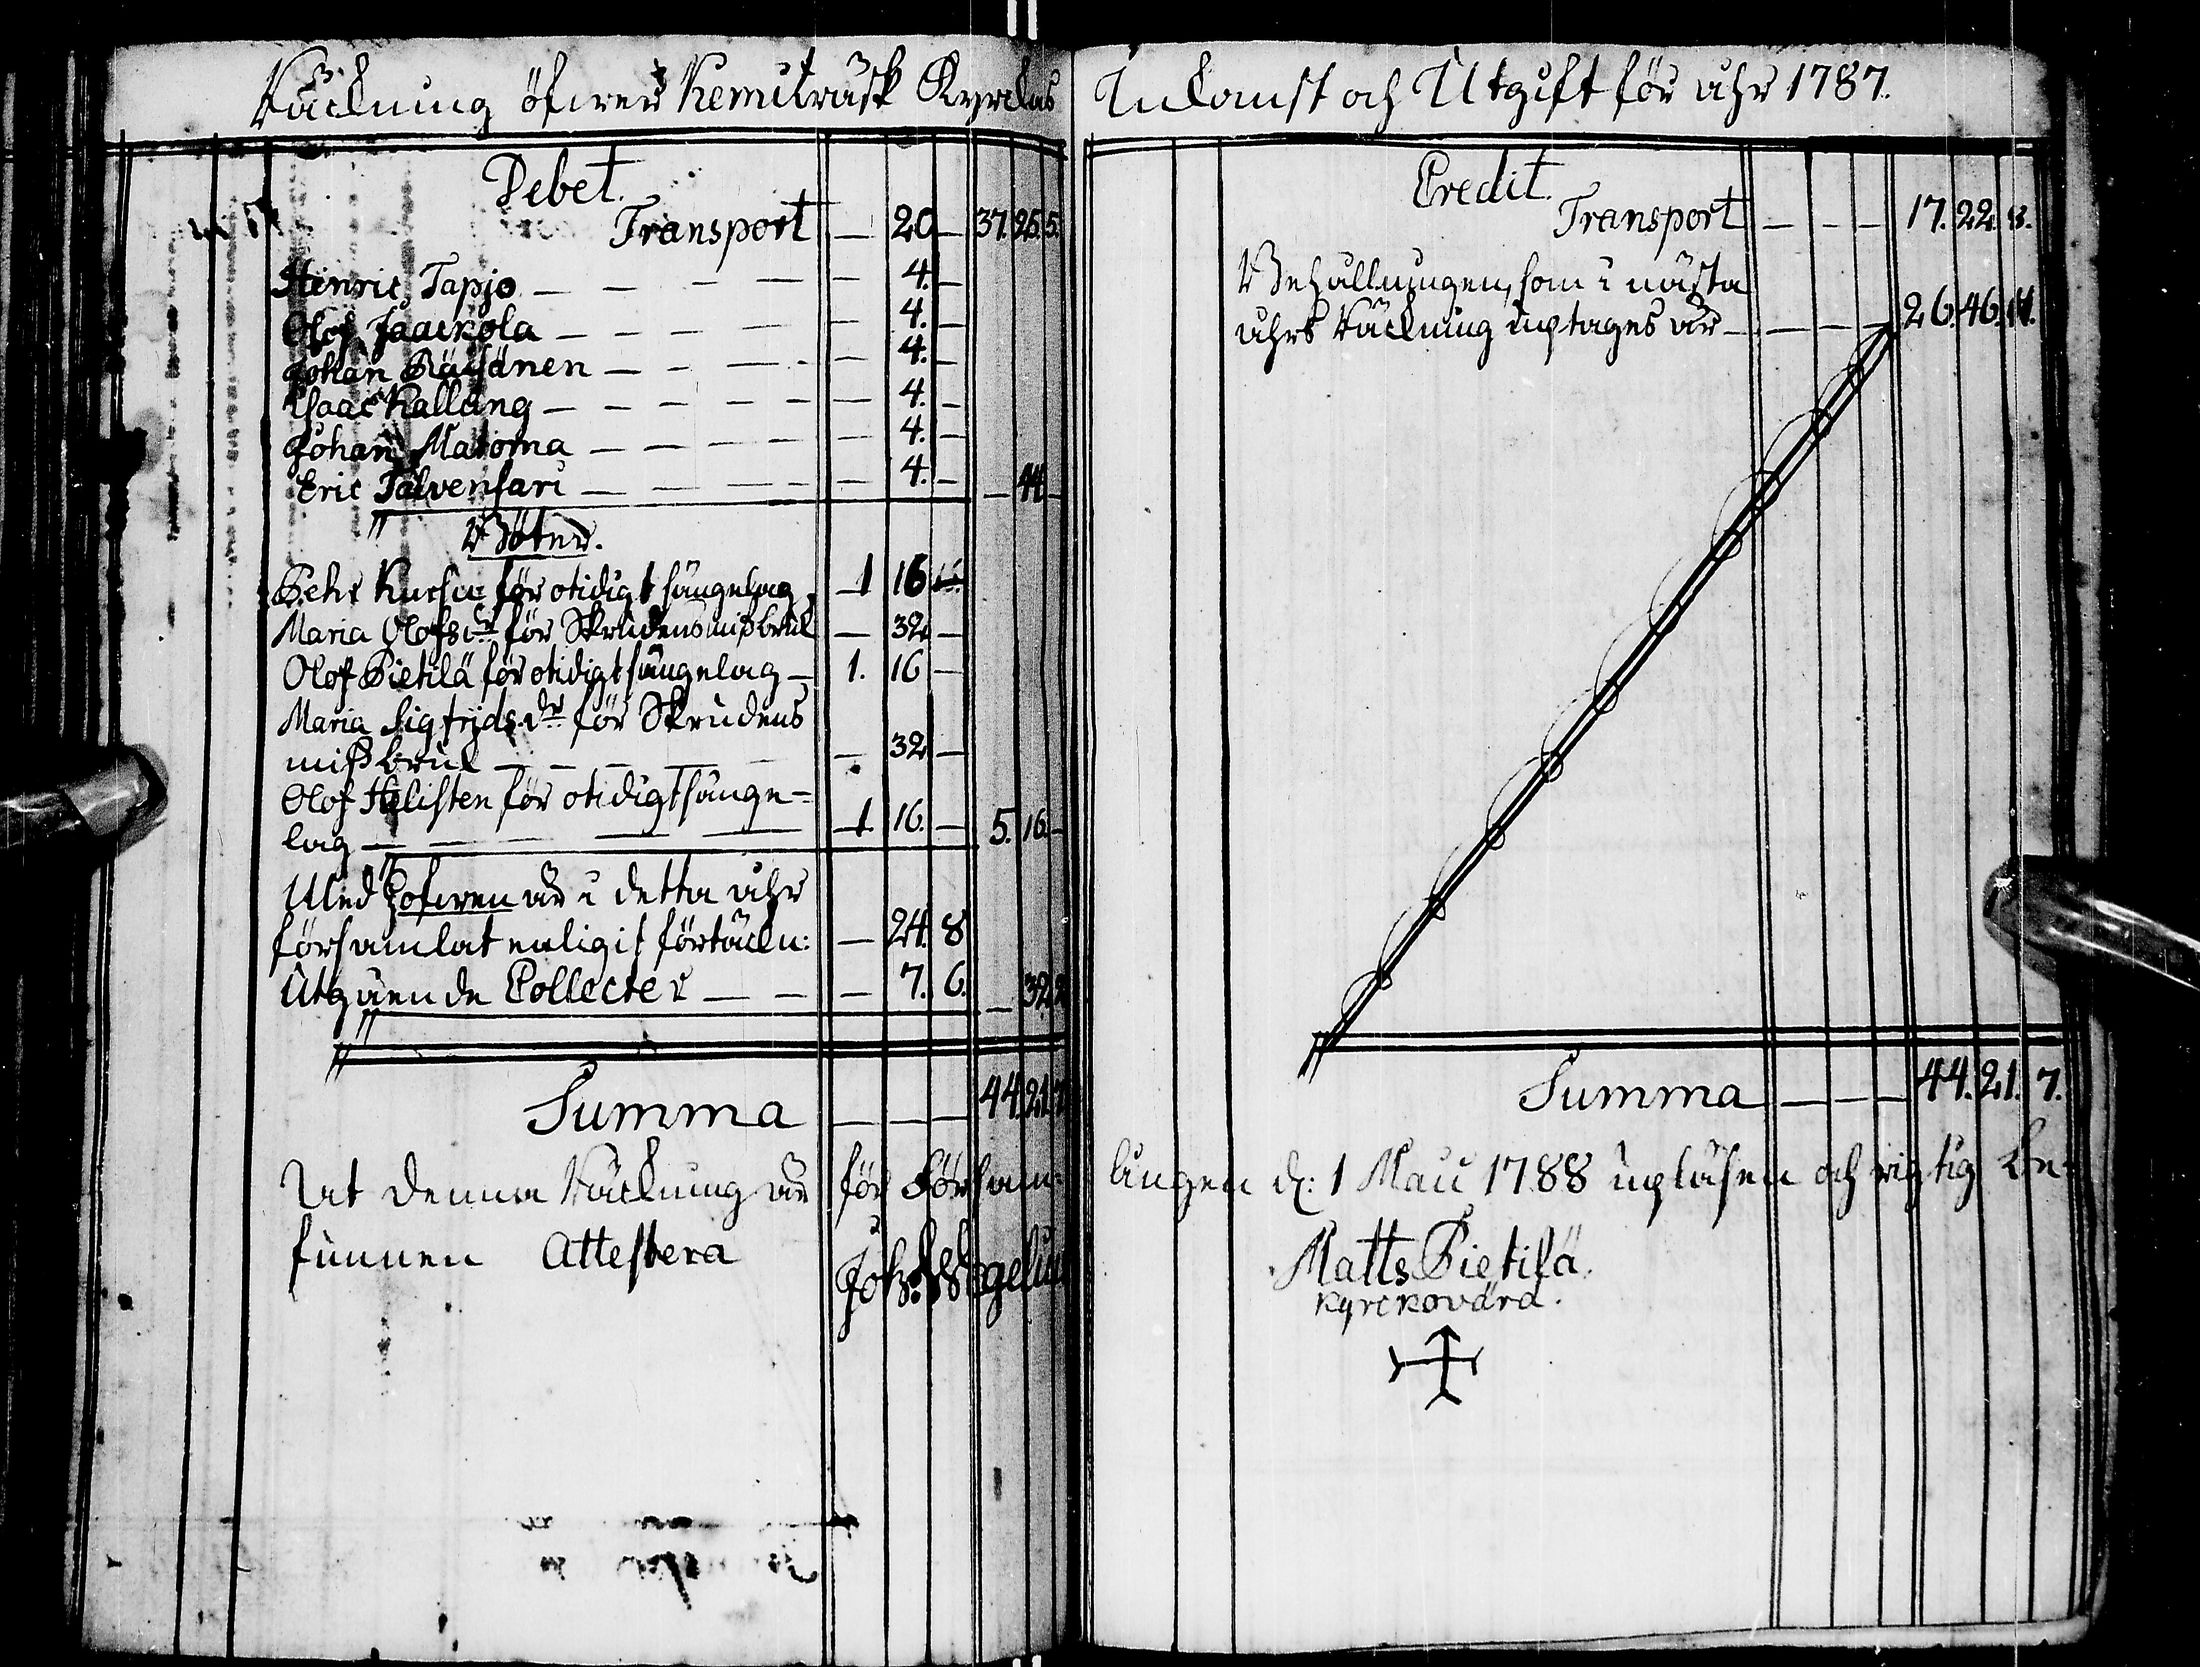 Räckning öfwer Kemiträsk Kyrckas Inkomst och Utgift för åhr 1787.
Debet.
Transport — 20 — 37. 25. 5.
Henric Tapjo — — — — 4. —
Olof Jaackola — — — — 4. —
Johan Räisänen — — — — 4. —
Isaac Kallung — — — — 4. —
Johan Matoma — — — — 4. —
Eric Talvensari — — — — 4. — — 44 —
Böter.
Pehr för otidigt sängelag 1 16
Maria Olofsdr för Skrudens missbruk — 32 —
Olof Pietilä för otidigt sängelag — 1. 16 —
Maria Sigfridsdr för Skrudens
missbruk — — — — 32 —
Olof Helisten för otidigt sänge-
lag — — — — 1. 16. — 5. 16. —
Med Hofwen är i detta åhr
församlat enligit förteckn: — 24. 8
Utgående Collecter — — — 7. 6. — 32. 2
Summa — — — 44. 21. 7
Credit.
Transport — — — 17. 22. 8.
Behållningen, som i nästa
åhrs Räckning uptages är — — — — 26. 46. 11.
Summa — — — 44. 21. 7.
At denna Räckning är för Försam-lingen d: 1 Maii 1788 upläsen och rigtig be-
funnen Attestera
Matts Pietilä
kyrckovärd.